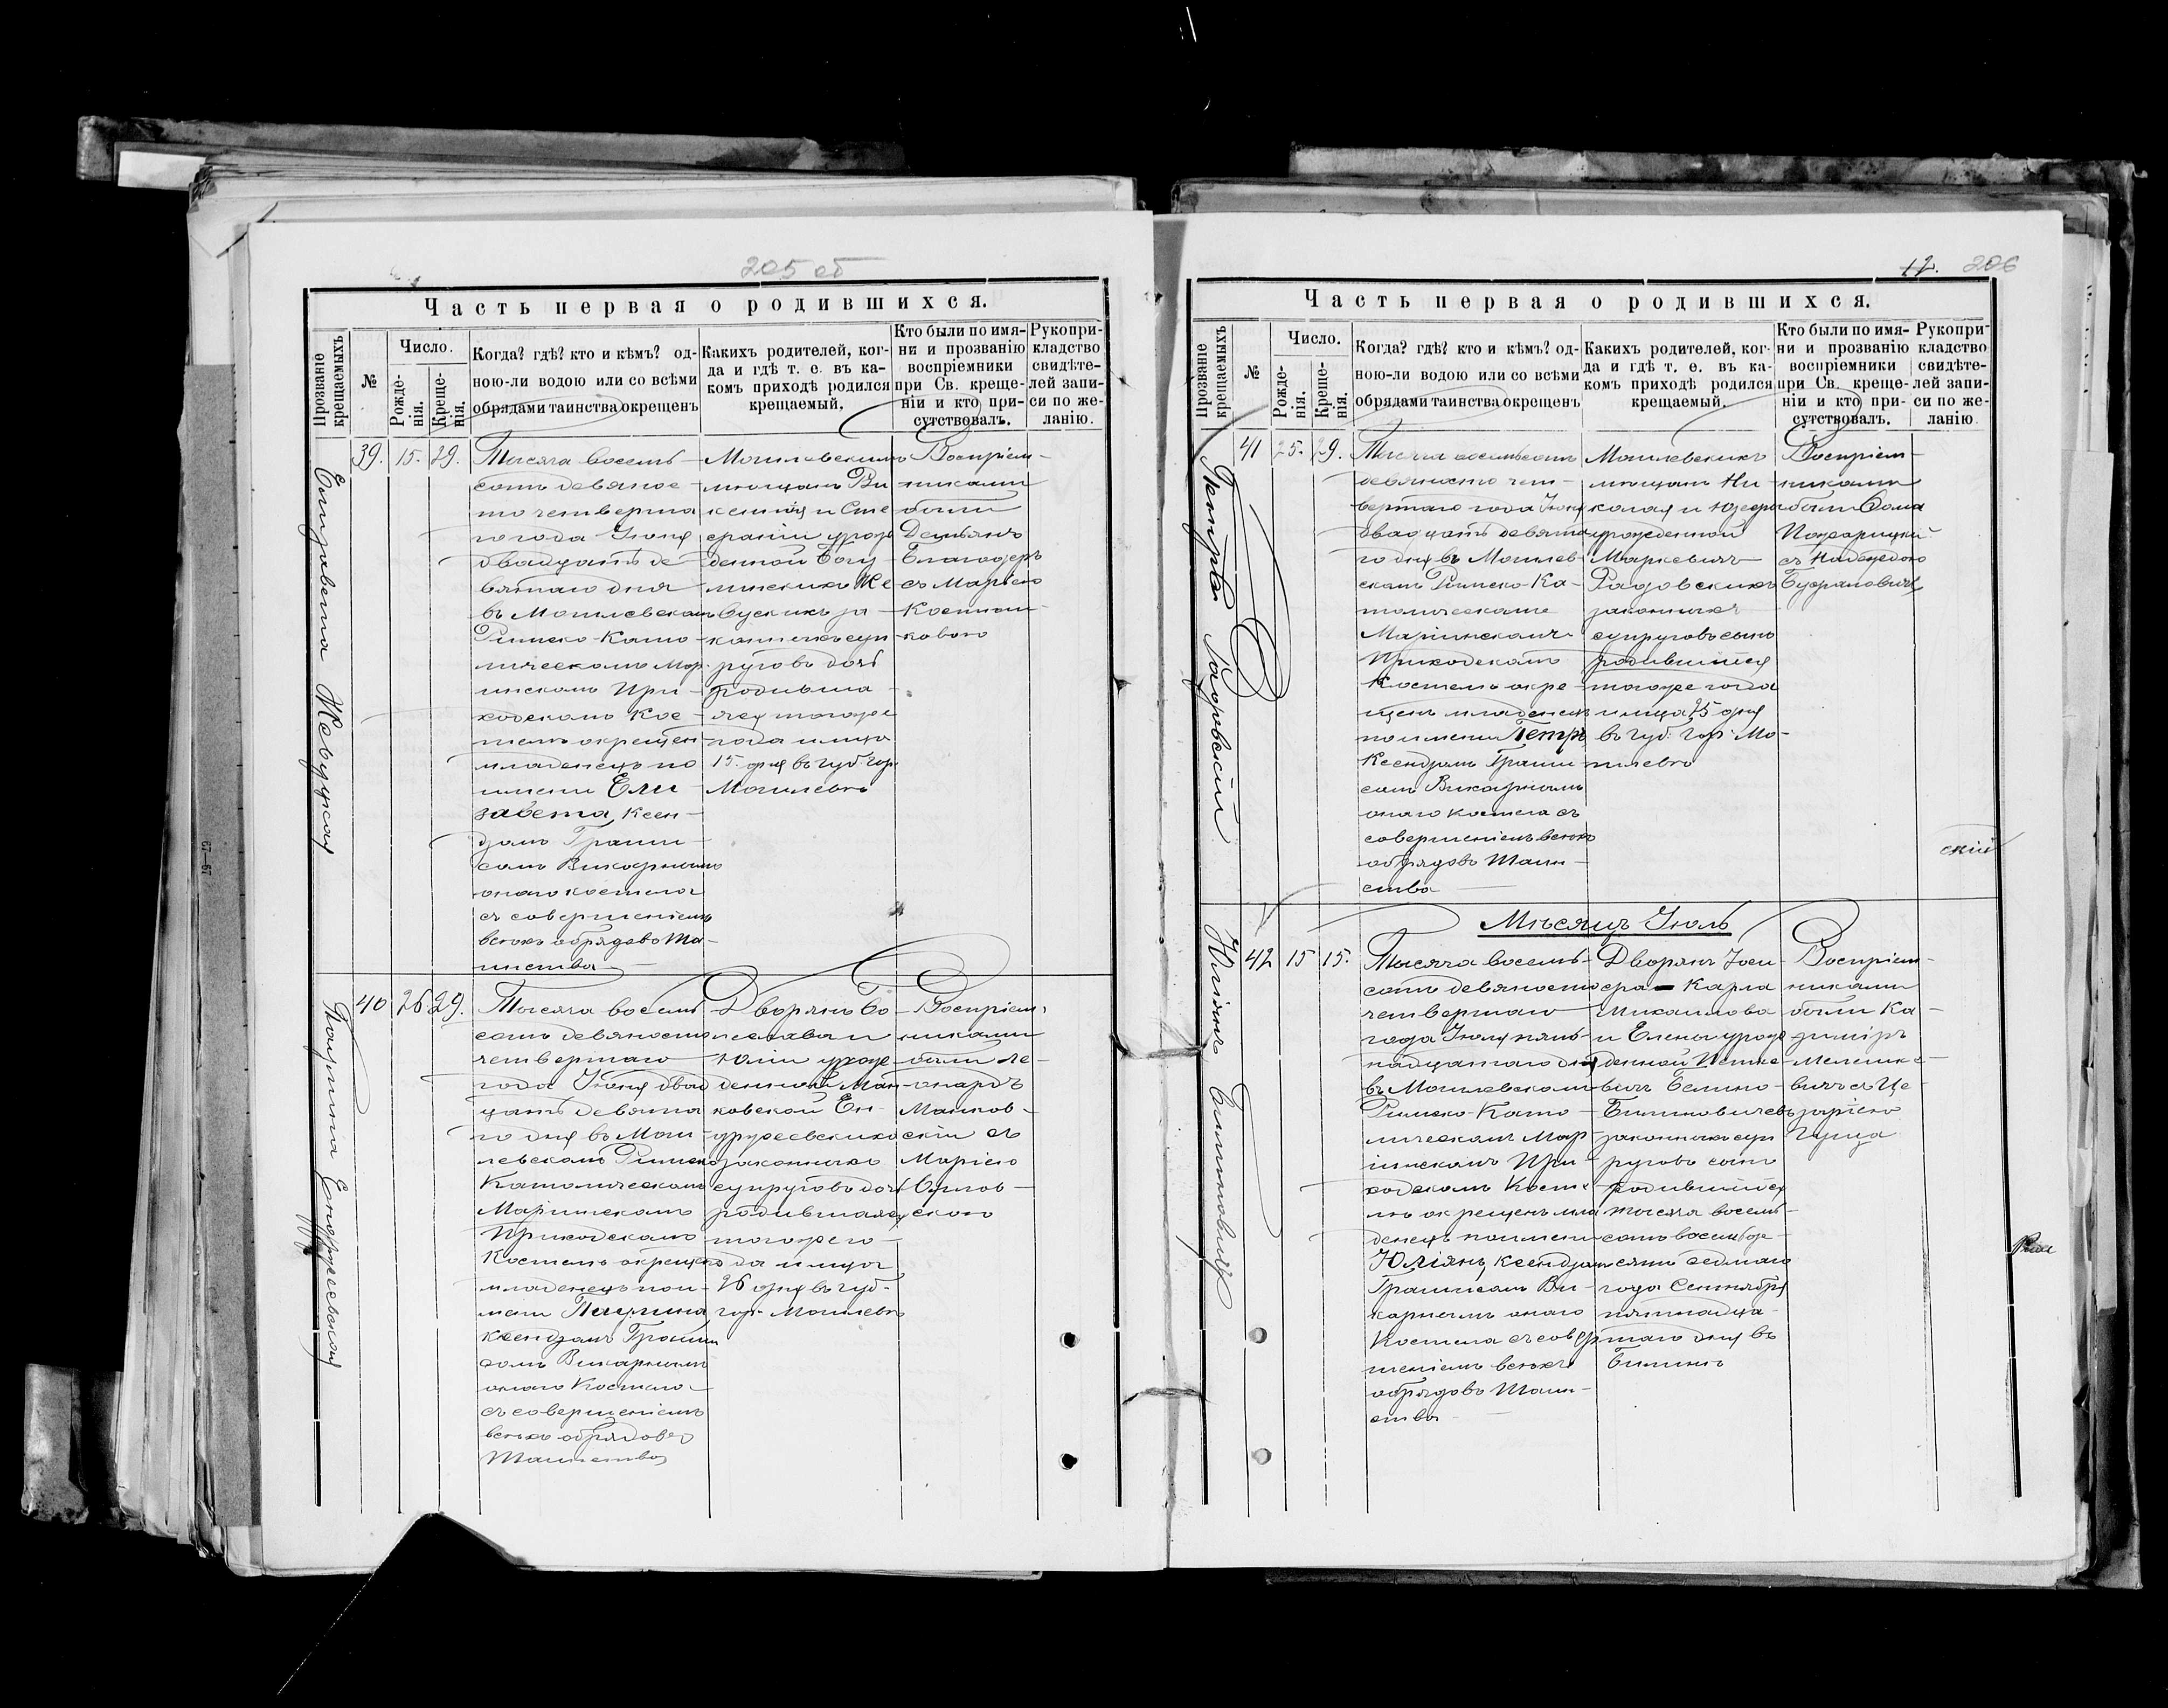 205 об
Часть первая о родившихся.
Прозваніе крещаемыхъ
№
Число.
Рожде-
нія.
Креще-
нія.
Когда? гдѣ? кто и кѣмъ? од-
ною-ли водою или со всѣми
обрядами таинства окрещенъ
Какихъ родителей, ког-
да и гдѣ т. е. въ ка-
комъ приходѣ родился
крещаемый.
Кто были по имя-
ни и прозванію
воспріемники
при Св. креще-
ніи и кто при-
сутствовалъ.
Рукопри-
кладство
свидѣте-
лей запи-
си по же-
ланію.
Елизавета
39. 15. 29.
Тысяча восемь-
сотъ девянос-
то четверта
го года Іюня
двадцать де
вятаго дня
въ Могилевскомъ
Римско-Като-
лическомъ Мар-
инскомъ При-
ходскомъ Кос-
телѣ окрещенъ
младенецъ по
имени Ели
завета, Ксен-
дзомъ
Викарнымъ
онаго костела
съ совершеніемъ
всѣхъ обрядовъ Та-
инства
Могилевскихъ
мѣщанъ Ви
кентія и Сте
фаніи урож
денной Богу
шинскихъ
законныхъ суп
руговъ дочь
родивша
яся тогоже
года и мца
15. дня въ губ. гор.
Могилевѣ
Воспріем-
никами
были
Демьянъ
съ Маріею
Паулина Ендржеевская
40 26 29.
Тысяча восемь
сотъ девяносто
четвертаго
года Іюня двад
цать девята
го дня въ Моги
левскомъ Римско
Католическомъ
Маріинскомъ
Приходскомъ
Костелѣ окрещенъ
младенецъ по и-
мени Паулина
ксендзомъ
Викарнымъ
онаго Костела
съ совершеніемъ
всѣхъ обрядовъ
Таинства
Дворянъ Бо
леслава и
Юліи урож
денной Мань
ковской Ен
држеевскихъ
законныхъ
супруговъ дочь
родившаяся
тогоже го
да и мца
26 дня въ губ.
гор. Могилевѣ
Воспріем-
никами
были Ле-
онардъ
Маньков-
скій съ
Маріею
Орлов-
скою
12. 206
Часть первая о родившихся.
Прозваніе крещаемыхъ
№
Число.
Рожде-
нія.
Креще-
нія.
Когда? гдѣ? кто и кѣмъ? од-
ною-ли водою или со всѣми
обрядами таинства окрещенъ
Какихъ родителей, ког-
да и гдѣ т. е. въ ка-
комъ приходѣ родился
крещаемый.
Кто были по имя-
ни и прозванію
воспріемники
при Св. креще-
ніи и кто при-
сутствовалъ.
Рукопри-
кладство
свидѣте-
лей запи-
си по же-
ланію.
Петръ
41 25. 29.
Тысяча восемьсотъ
девяносто чет-
вертаго года Іюня
двадцать девята
го дня въ Могилев-
скомъ Римско-Ка-
толическомъ
Маріинскомъ
Приходскомъ
Костелѣ окре-
щенъ младенецъ
по имени Петръ
Ксендзомъ
Викарнымъ
онаго костела съ
совершеніемъ всѣхъ
обрядовъ Таин-
ства
Могилевскихъ
мѣщанъ Ни-
колая и Юзефы
урожденной
Маркевичъ
законныхъ
супруговъ сынъ
родившійся
тогоже года
и мца 25 дня
въ губ. гор. Мо-
гилевѣ
Воспріем-
никами
были Ѳома
съ Надеждою
скій
Мѣсяцъ Іюль
Юліянъ
42 15 15.
Тысяча восемь-
сотъ девяносто
четвертаго
года Іюля пят-
надцатаго дня
въ Могилевскомъ
Римско-Като-
лическомъ Мар-
іинскомъ При-
ходскомъ Косте-
лѣ окрещенъ мла
денецъ по имени
Юліянъ, ксендзомъ
Ви-
карнымъ онаго
Костела съ совер
шеніемъ всѣхъ
обрядовъ Таин-
ства
Дворянъ Іоси
фа - Карла
Михаилова
и Елены урож
денной
законныхъ суп
руговъ сынъ
родившійся
тысяча восемь-
сотъ восемьде-
сятъ седмаго
года Сентября
пятнадца-
таго дня въ
Воспріем-
никами
были Ка-
зиміръ